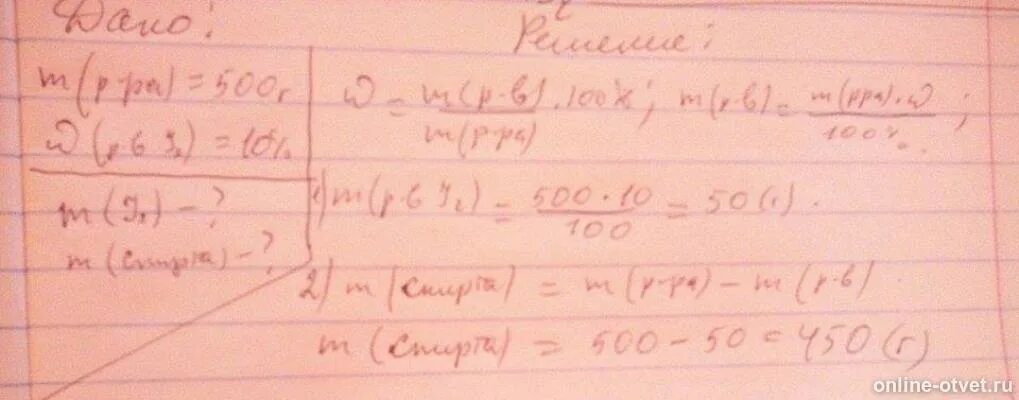 Дано:
m(р-ра) = 500г
ω(р-в J₂) = 10%
m(J₂) - ?
m(спирта) - ?
Решение:
ω = m(р-в) · 100% / m(р-ра) ; m(р-в) = m(рра) · ω / 100% ;
1) m(р в J₂) = 500 · 10 / 100 = 50(г).
2) m(спирта) = m(р-ра) - m(р-в)
m(спирта) = 500 - 50 = 450(г)
online-otvet.ru